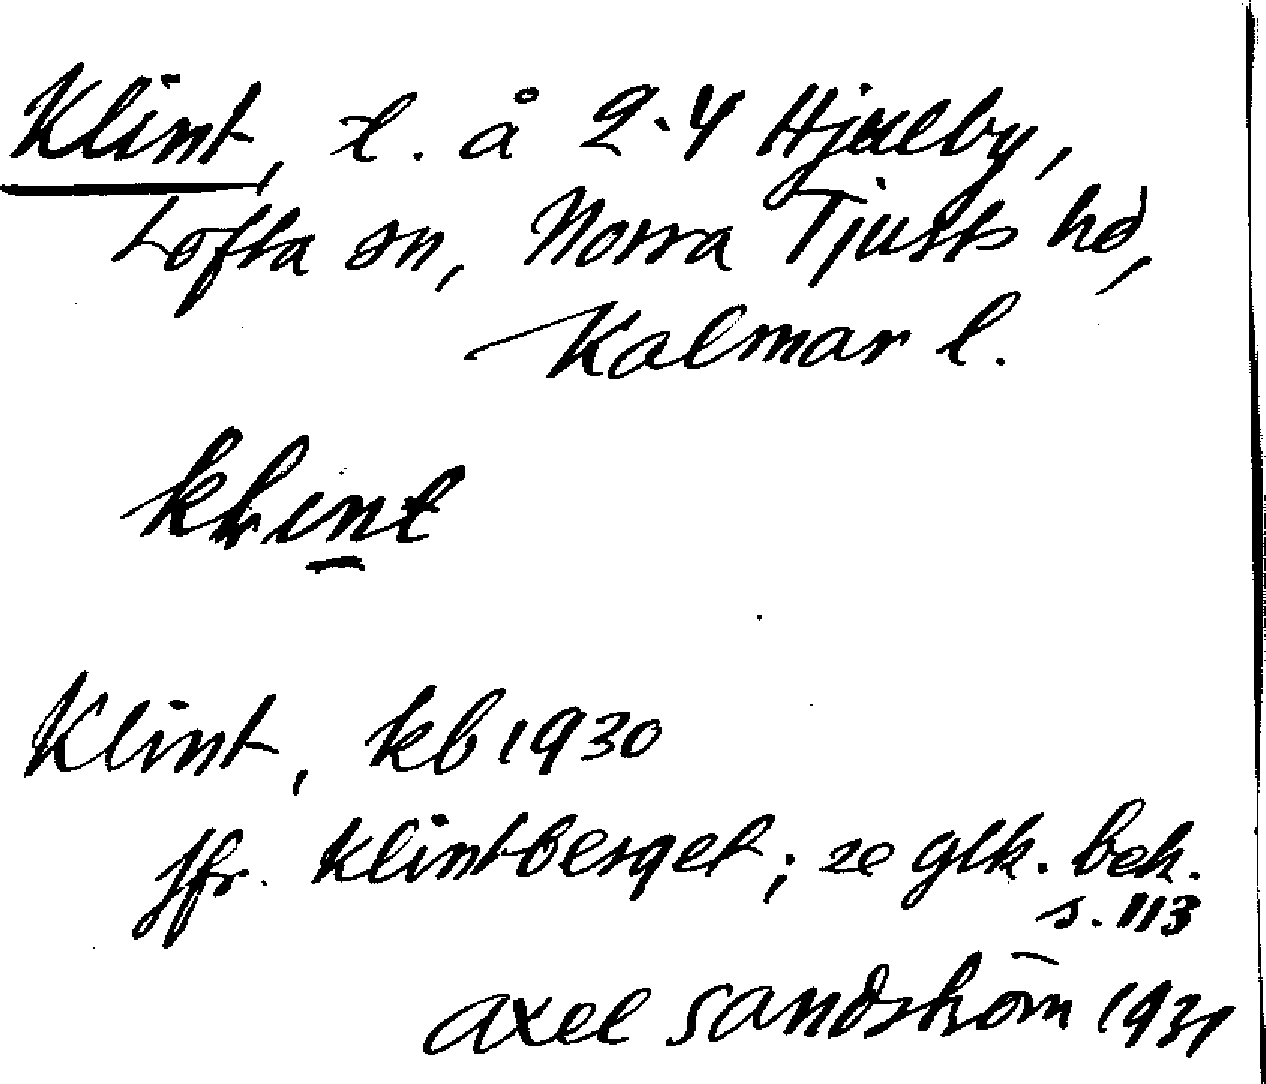 Klint, t. å 2-4 Hjälby,
Lofta sn, Norra Tjusts hd,
Kalmar l.
klint
Klint, kb 1930
Jfr. Klintberget; se glk. bek.
s. 113
Axel Sandström 1931